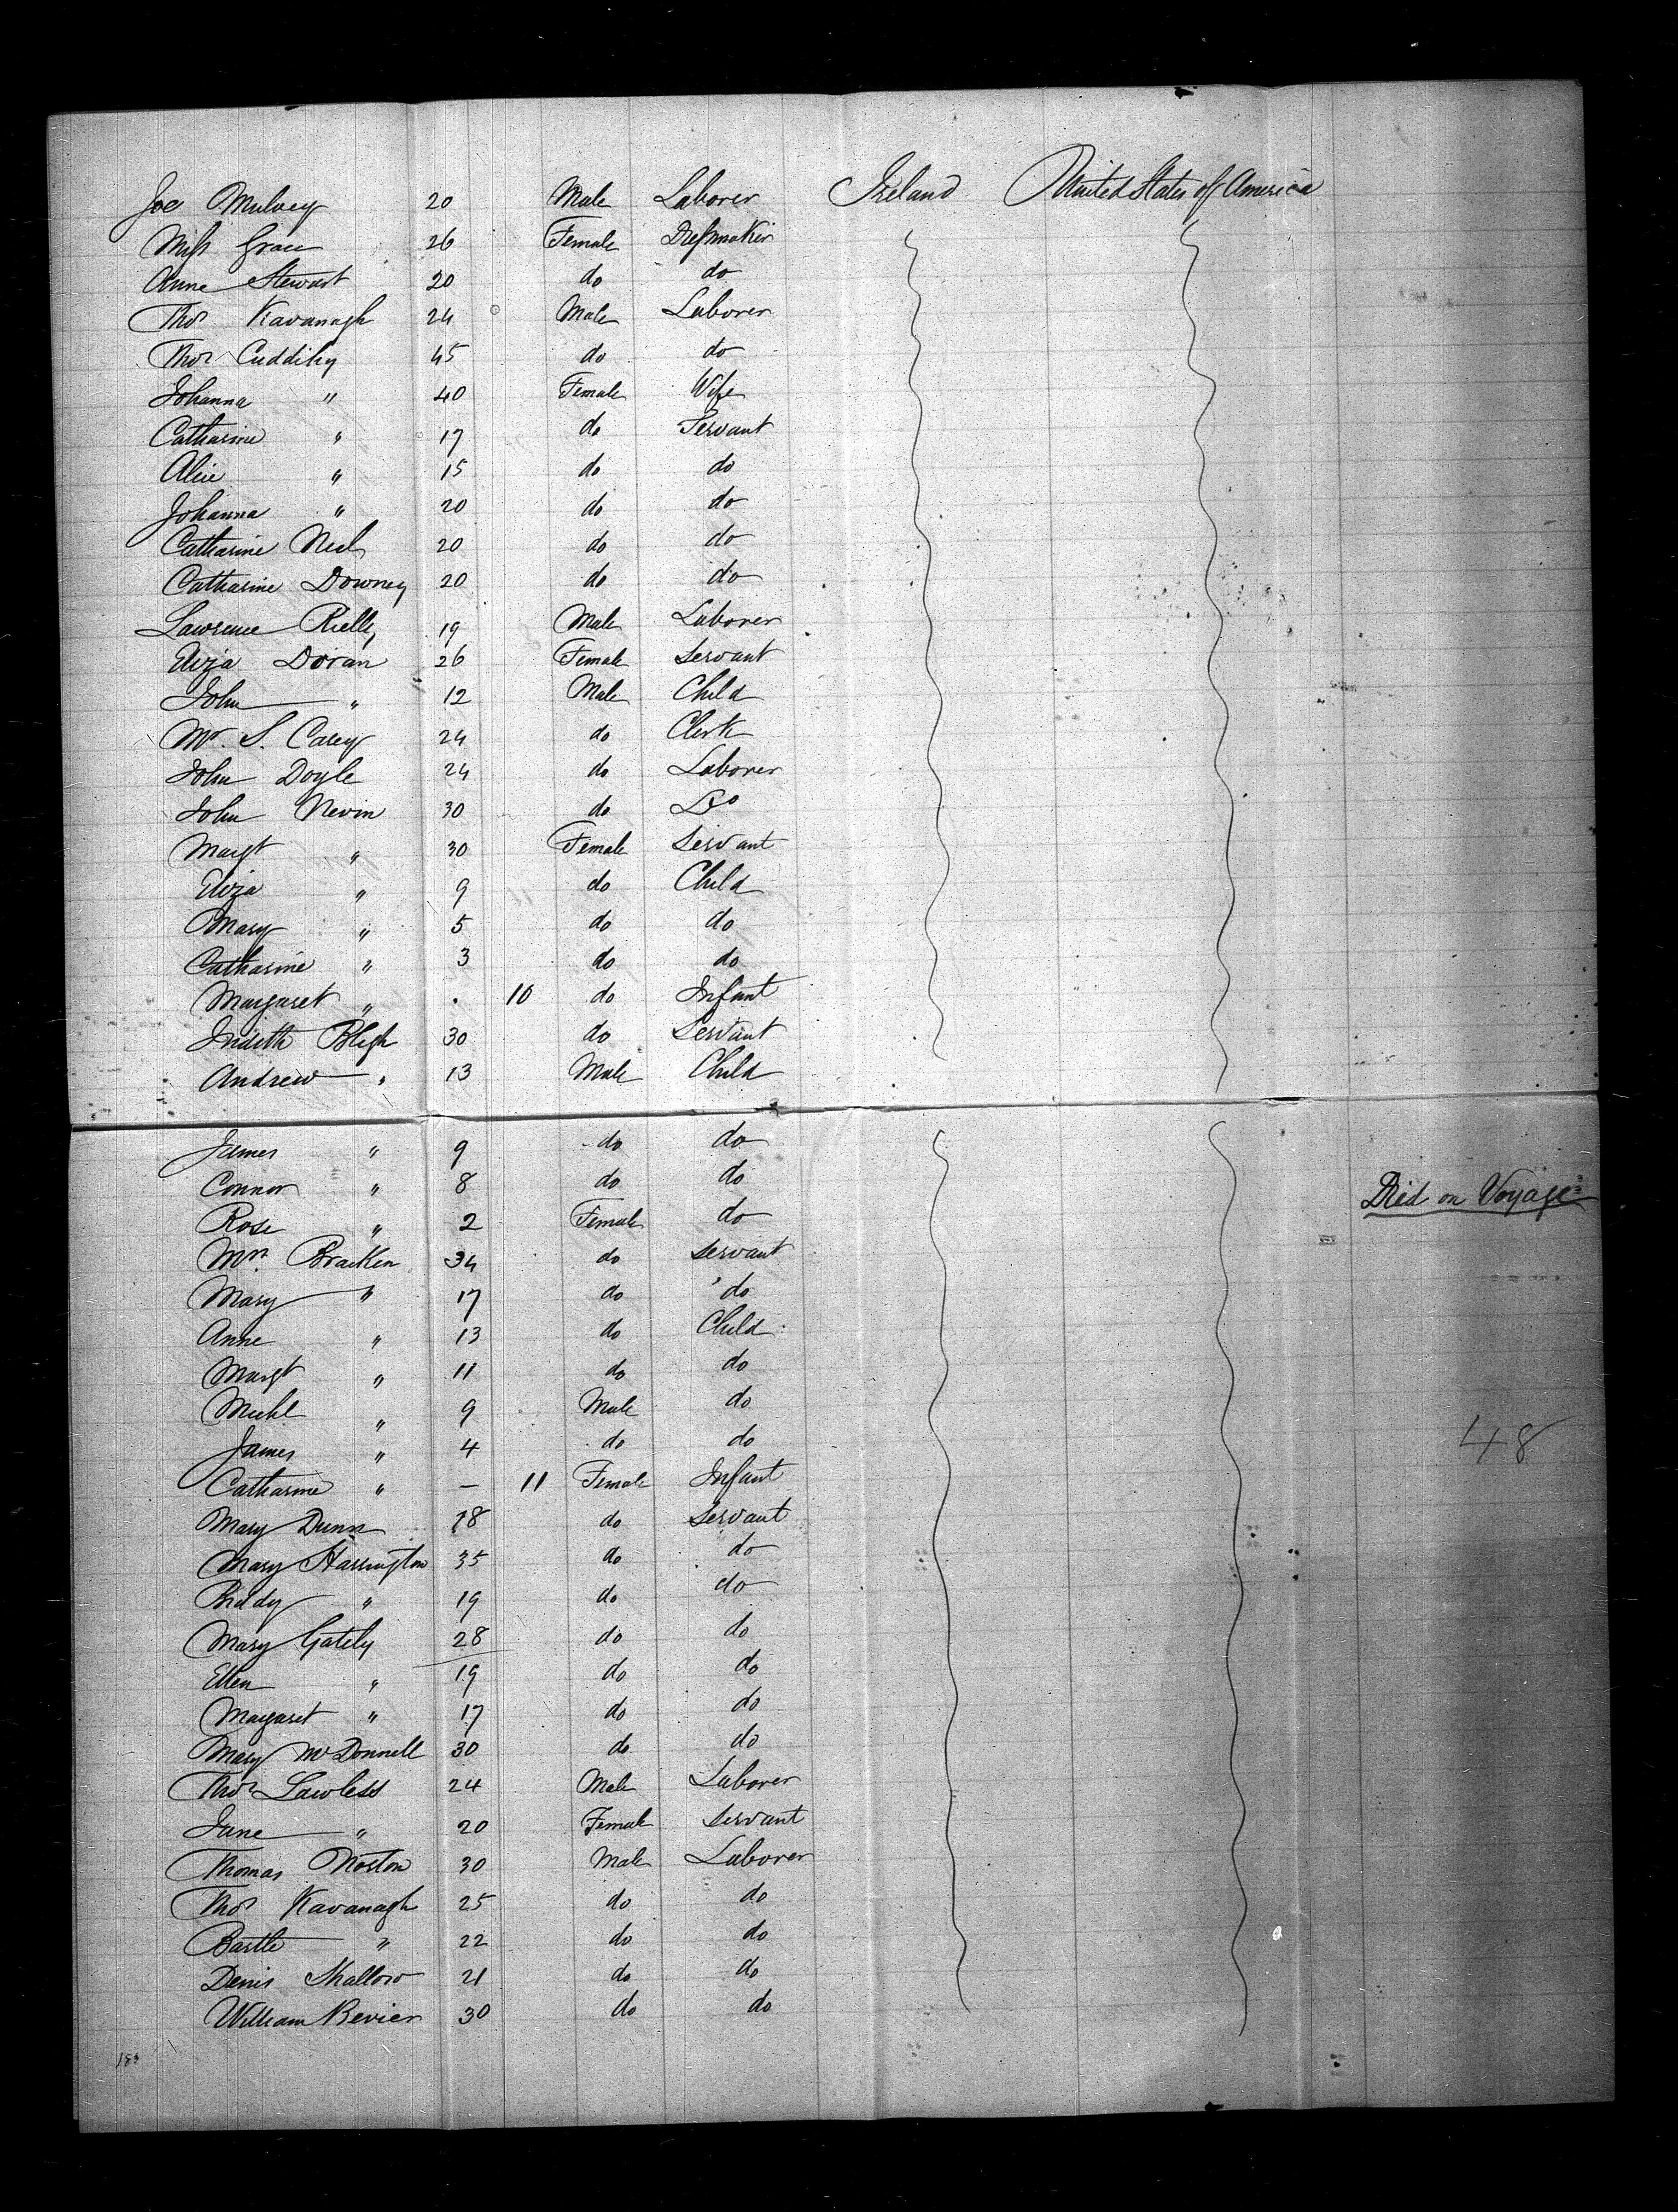 Joe Mulvey 20 Male Laborer Ireland United States of America
Miss Grace 26 Female Dressmaker
Anne Stewart 20 do do
Thos Kavanagh 24 Male Laborer
Thos Cuddihy 45 do do
Johanna " 40 Female Wife
Catharine " 17 do Servant
Alice " 15 do do
Johanna " 20 do do
Catharine Neil 20 do do
Catharine Downey 20 do do
Lawrence Rielly 19 Male Laborer
Eliza Doran 26 Female Servant
John " 12 Male Child
Mr. S. Casey 24 do Clerk
John Doyle 24 do Laborer
John Nevin 30 do Do
Margt " 30 Female Servant
Eliza " 9 do Child
Mary " 5 do do
Catharine " 3 do do
Margaret " . 10 do Infant
Judith Bligh 30 do Servant
Andrew " 13 Male Child
James " 9 do do
Connor " 8 do do
Rose " 2 Female do Died on Voyage
Mrs. Bracken 34 do Servant
Mary " 17 do do
Anne " 13 do Child
Margt " 11 do do
Michl " 9 Male do
James " 4 do do 48
Catharine " — 11 Female Infant
Mary Dunn 18 do Servant
Mary Harrington 35 do do
Biddy " 19 do do
Mary Gately 28 do do
Ellen " 19 do do
Margaret " 17 do do
Mary McDonnell 30 do do
Thos Lawless 24 Male Laborer
Jane " 20 Female Servant
Thomas Norton 30 Male Laborer
Thos Kavanagh 25 do do
Bartle " 22 do do
Denis Shallow 21 do do
William Revier 30 do do